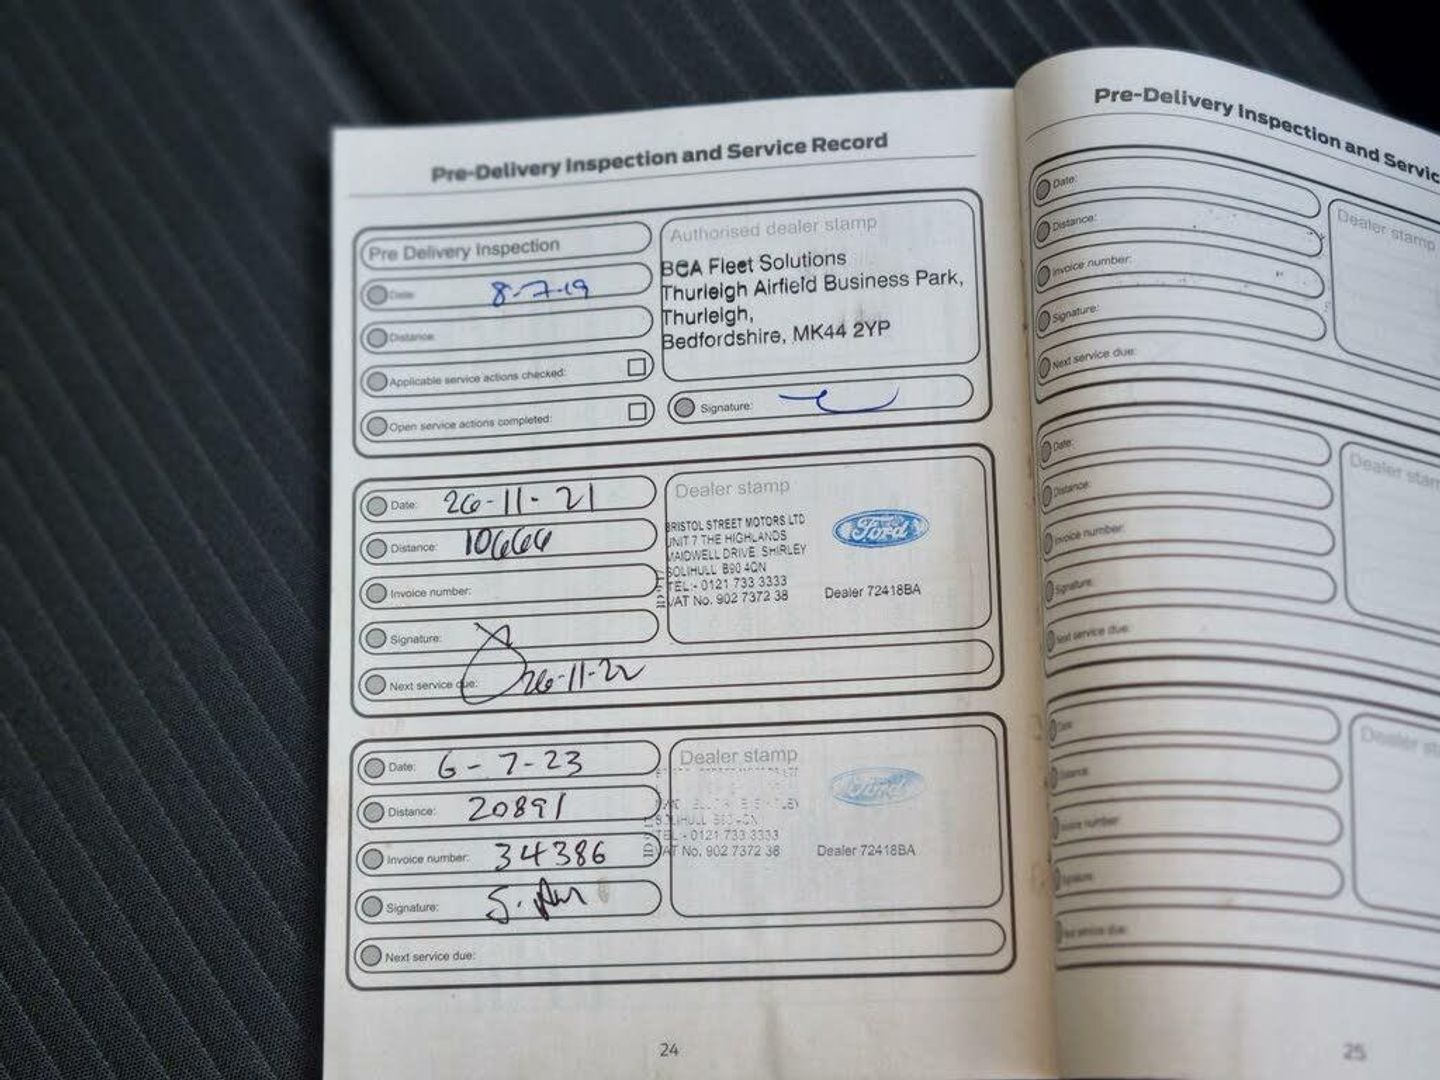 Pre-Delivery Inspection and Service Record
Pre Delivery Inspection
Date: 8-7-19
Distance:
Applicable service actions checked:
Open service actions completed:
Authorised dealer stamp
BCA Fleet Solutions
Thurleigh Airfield Business Park,
Thurleigh,
Bedfordshire, MK44 2YP
Signature:
Date: 26-11-21
Distance: 10666
Invoice number:
Signature:
Next service due: 26-11-22
Dealer stamp
BRISTOL STREET MOTORS LTD
UNIT 7 THE HIGHLANDS
MAIDWELL DRIVE SHIRLEY
SOLIHULL B90 4QN
TEL:- 0121 733 3333
VAT No. 902 7372 38
Ford
Dealer 72418BA
Date: 6-7-23
Distance: 20891
Invoice number: 34386
Signature: S.
Next service due:
Dealer stamp
SOLIHULL
TEL - 0121 733 3333
VAT No. 902 7372 38
Ford
Dealer 72418BA
24
Pre-Delivery Inspection and Servic
Date:
Distance:
Invoice number:
Signature:
Next service due:
Dealer stamp
Date:
Distance:
Invoice number:
Signature:
Next service due:
Dealer stam
Date:
Distance:
Invoice number:
Signature:
Next service due:
Dealer st
25